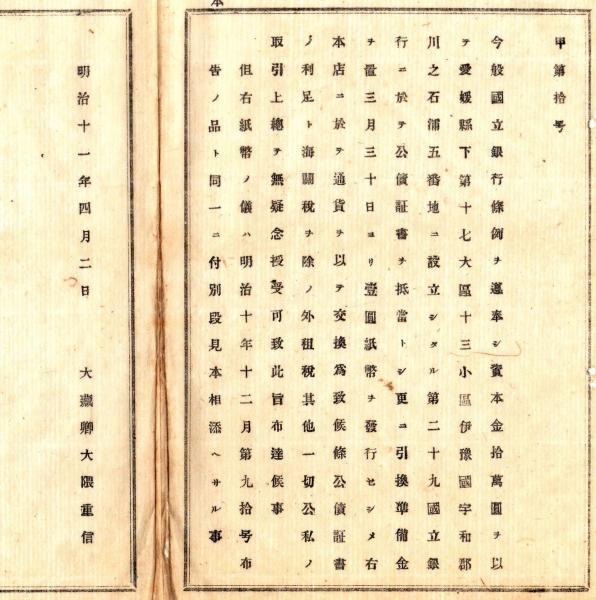 甲第拾号
今般國立銀行條例ヲ遵奉シ資本金拾萬圓ヲ以
テ愛媛縣下第十七大區十三小區伊豫國宇和郡
川之石浦五番地ニ設立シタル第二十九國立銀
行ニ於テ公債証書ヲ抵當トシ更ニ引換準備金
ヲ置三月三十日ヨリ壹圓紙幣ヲ發行セシメ右
本店ニ於テ通貨ヲ以テ交換爲致候條公債証書
ノ利足ト海關稅ヲ除ノ外租稅其他一切公私ノ
取引上總テ無疑念授受可致此旨布達候事
但右紙幣ノ儀ハ明治十年十二月第九拾号布
告ノ品ト同一ニ付別段見本相添ヘサル事
本
明治十一年四月二日 大藏卿大隈重信